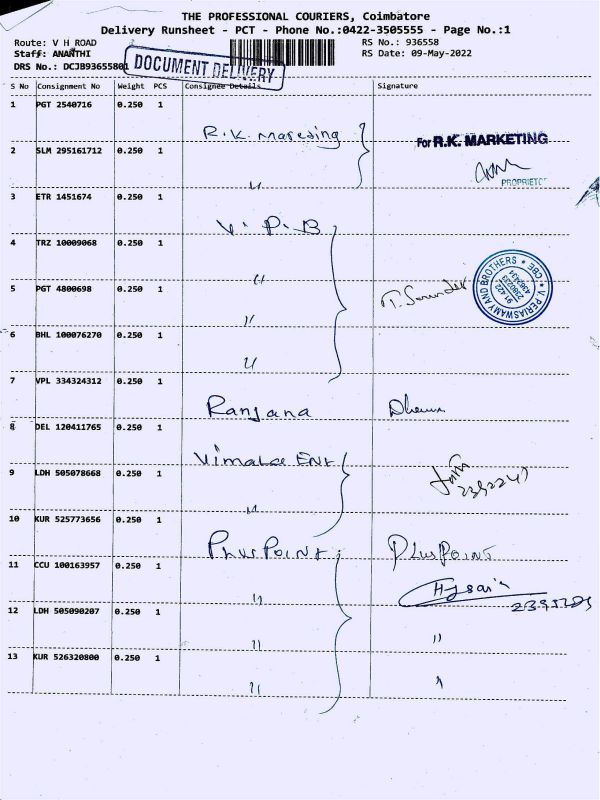 THE PROFESSIONAL COURIERS, Coimbatore
Delivery Runsheet - PCT - Phone No.:0422-3505555 - Page No.:1
Route: V H ROAD
RS No.: 936558
Staff: ANANTHI
RS Date: 09-May-2022
DRS No.: DCJB93655801
DOCUMENT DELIVERY
S No Consignment No Weight PCS Consignee Details Signature
1 PGT 2540716 0.250 1
R.K. Mareding
For R.K. MARKETING
2 SLM 295161712 0.250 1
PROPRIETOR
"
3 ETR 1451674 0.250 1
V. P. B
4 TRZ 10009068 0.250 1
"
V. PERIASWAMY AND BROTHERS * CBE *
5 PGT 4800698 0.250 1
"
6 BHL 100076270 0.250 1
"
7 VPL 334324312 0.250 1
Ranjana
8 DEL 120411765 0.250 1
Vimala Ent
9 LDH 505078668 0.250 1
"
10 KUR 525773656 0.250 1
Plus Point
Plus Point
11 CCU 100163957 0.250 1
"
12 LDH 505090207 0.250 1
" "
13 KUR 526320800 0.250 1
" "